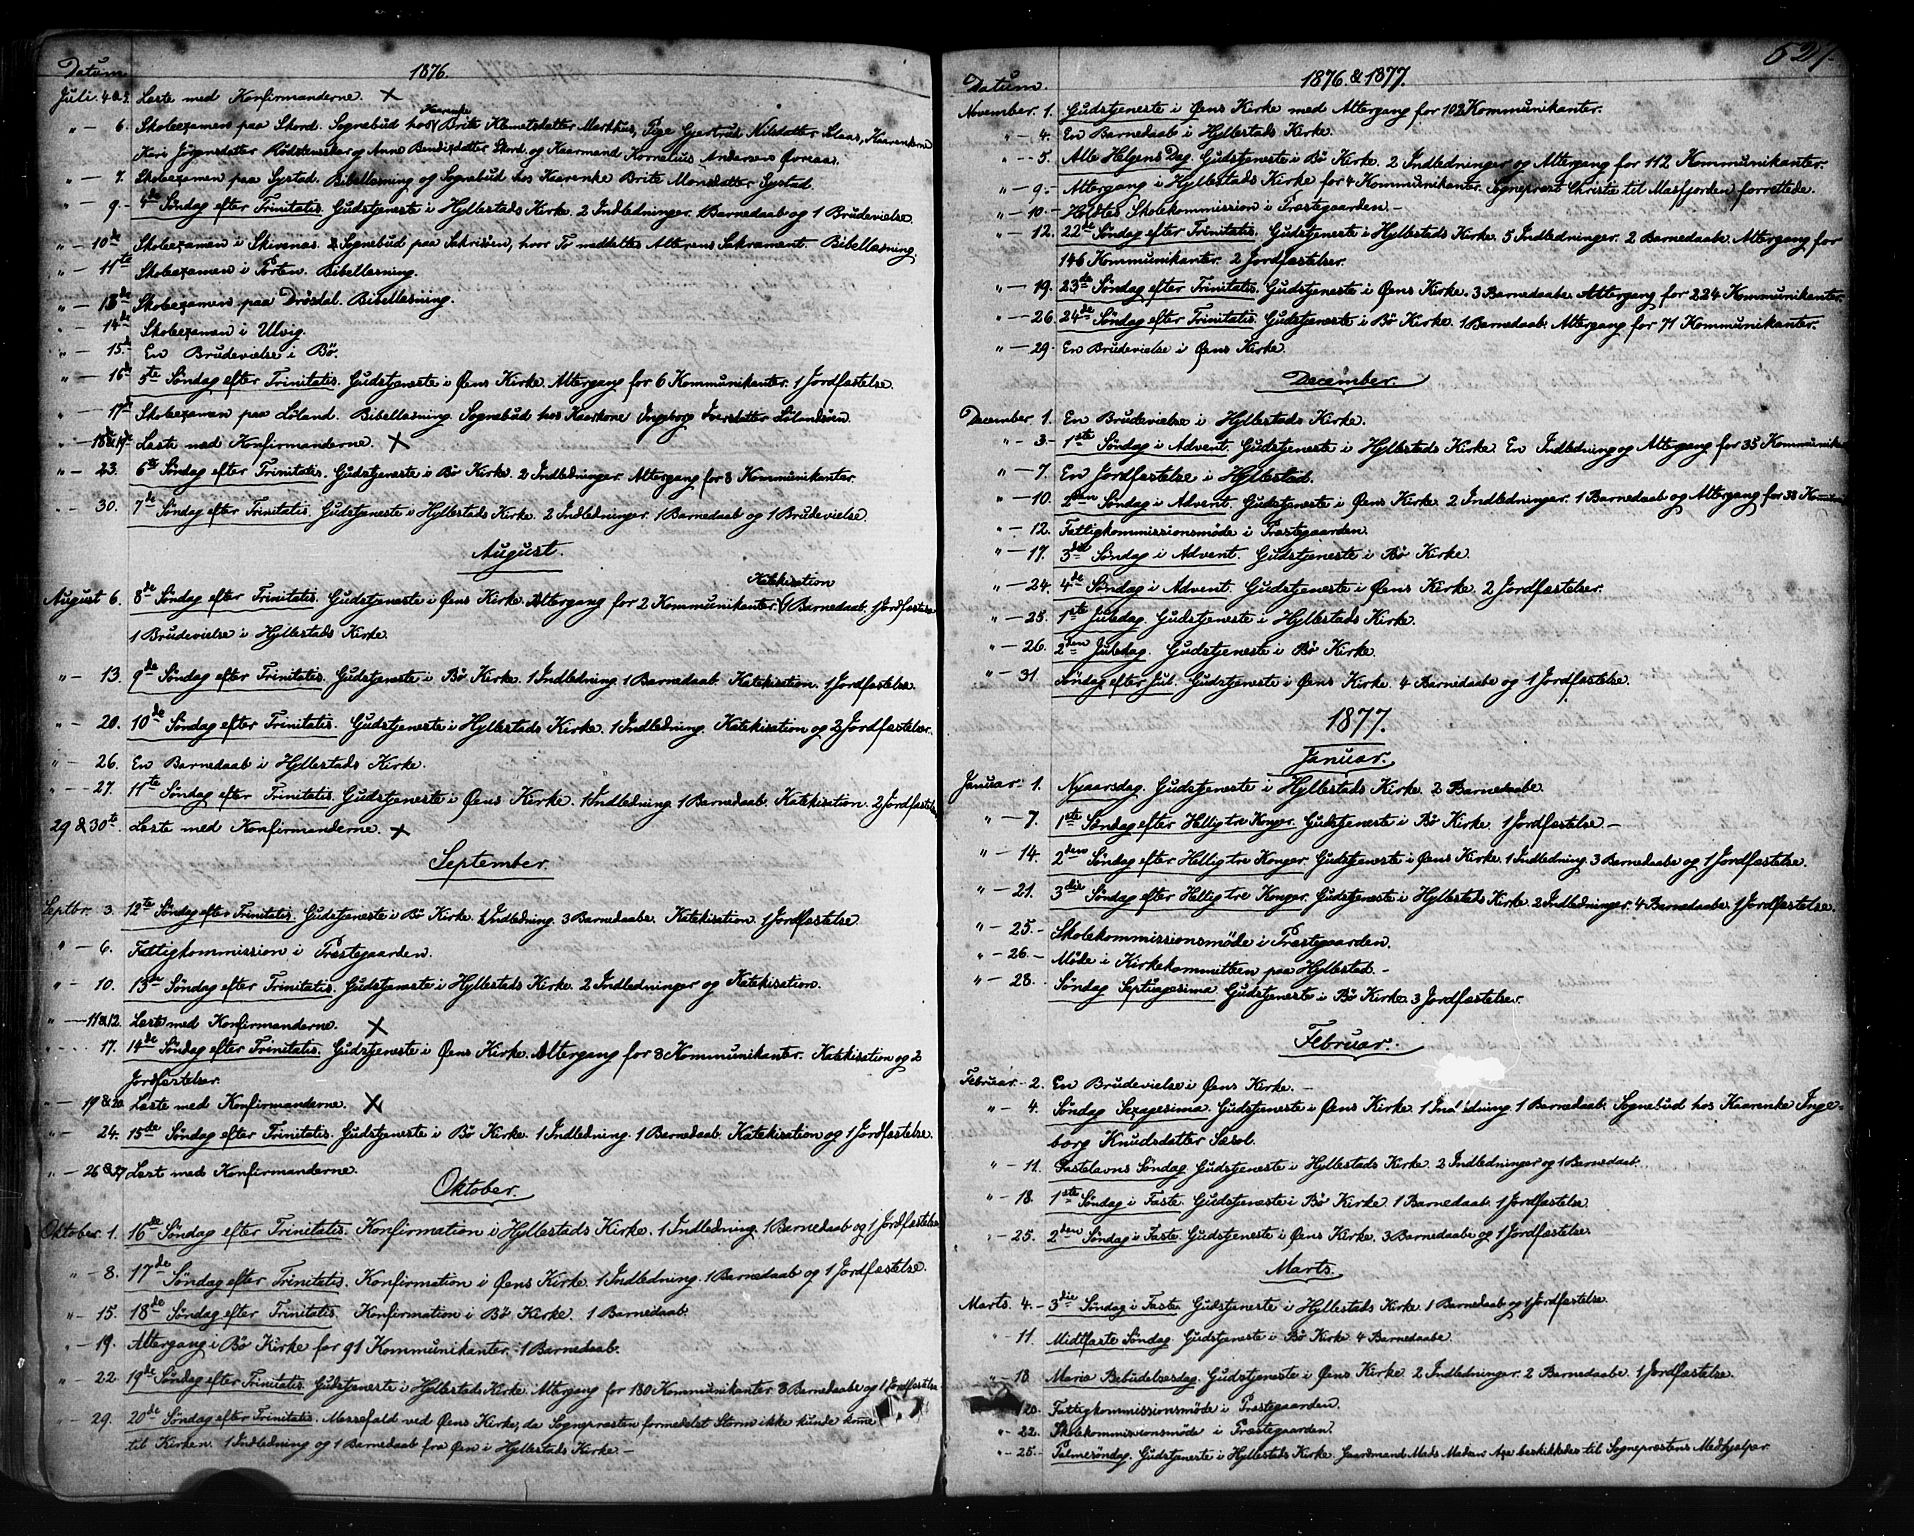 Datum
1876.
Juli. 4 & 5. Læste med Konfirmanderne. X
" — 6. Skoleexamen paa Skord. Sognebud hos Kaarafo Brite Klemetsdatter Marthus, Pige Gjertrud Nilsdatter Staas, Kaarenkerne
Kari Jógensdatter Rødstenskar og Anne Bendixdatter Skord og Kaarmand Kornelius Andersen
" — 7. Skoleexamen paa Systad. Bibellæsning og Sognebud hos Kaarenke Brite Monsdatter Systad.
" — 9. 4de Søndag efter Trinitatis. Gudstjeneste i Hyllestads Kirke. 2 Indledninger. 1 Barnedaab og 1 Brudevielse.
" — 10de Skoleexamen i Skivenæs. & Sognebud paa Sakrisøen, hvor To meddeltes Alterens Sakrament. Bibellæsning.
" — 11te Skoleexamen i Porten. Bibellæsning.
" — 13de Skoleexamen paa Drösdal. Bibellæsning.
" — 14de Skoleexamen i Ulvig.
" — 15. En Brudevielse i Bø.
" — 16de 5te Søndag efter Trinitatis. Gudstjeneste i Øens Kirke. Altergang for 6 Kommunikanter. 1 Jordfæstelse.
" — 17de Skoleexamen paa Løland. Bibellæsning. Sognebud hos Kaarkone Ingeborg Iversdatter
" — 18de & 19de Læste med Konfirmanderne. X
" — 23. 6te Søndag efter Trinitatis. Gudstjeneste i Bø Kirke. 2 Indledninger. Altergang for 8 Kommunikanter.
" — 30. 7de Søndag efter Trinitatis. Gudstjeneste i Hyllestads Kirke. 2 Indledninger. 1 Barnedaab og 1 Brudevielse.
August.
Katekisation
August 6. 8de Søndag efter Trinitatis. Gudstjeneste i Øens Kirke. Altergang for 2 Kommunikanter. 1 Barnedaab. 1 Jordfæstelse
1 Brudevielse i Hyllestads Kirke.
" — 13. 9de Søndag efter Trinitatis. Gudstjeneste i Bø Kirke. 1 Indledning. 1 Barnedaab. Katekisation. 1 Jordfæstelse.
" — 20. 10de Søndag efter Trinitatis. Gudstjeneste i Hyllestads Kirke. 1 Indledning. Katekisation og 2 Jordfæstelser.
" — 26. En Barnedaab i Hyllestads Kirke.
" — 27. 11te Søndag efter Trinitatis. Gudstjeneste i Øens Kirke. 1 Indledning. 1 Barnedaab. Katekisation. 2 Jordfæstels
29 & 30te. Læste med Konfirmanderne. X
September.
Septbr. 3. 12te Søndag efter Trinitatis. Gudstjeneste i Bø Kirke. 1 Indledning. 3 Barnedaabe. Katekisation. 1 Jordfæstelse.
" — 6. Fattigkommission i Præstegaarden.
" — 10. 13de Søndag efter Trinitatis. Gudstjeneste i Hyllestads Kirke. 2 Indledninger og Katekisation.
" — 11 & 12. Læste med Konfirmanderne. X
" — 17. 14de Søndag efter Trinitatis. Gudstjeneste i Øens Kirke. Altergang for 8 Kommunikanter. Katekisation og 2
Jordfæstelser.
" — 19 & 20. Læste med Konfirmanderne. X
" — 24. 15de Søndag efter Trinitatis. Gudstjeneste i Bø Kirke. 1 Indledning. 1 Barnedaab. Katekisation og 1 Jordfæstelse.
" — 26 & 27 Læst med Konfirmanderne.
Oktober.
Oktober. 1. 16de Søndag efter Trinitatis. Konfirmation i Hyllestads Kirke. 1 Indledning. 1 Barnedaab og 1 Jordfæstelse
" — 8. 17de Søndag efter Trinitatis. Konfirmation i Øens Kirke. 1 Indledning. 1 Barnedaab og 1 Jordfæstelse.
" — 15. 18de Søndag efter Trinitatis. Konfirmation i Bø Kirke. 1 Barnedaab.
" — 19. Altergang i Bø Kirke for 91 Kommunikanter. 1 Barnedaab.
" — 22. 19de Søndag efter Trinitatis. Gudstjeneste i Hyllestads Kirke. Altergang for 180 Kommunikanter. 3 Barnedaabe og 1 Jordfæstelse
" — 29. 20de Søndag efter Trinitatis. Messefald ved Øens Kirke, da Sognepræsten formedelst Storm ikke kunde kome
til Kirken. 1 Indledning og 1 Barnedaab fra Øen i Hyllestads Kirke. —
527.
Datum.
1876 & 1877.
November. 1. Gudstjeneste i Øens Kirke med Altergang for 102 Kommunikanter.
" — 4. En Barnedaab i Hyllestads Kirke.
" — 5. Alle Helgens Dag. Gudstjeneste i Bø Kirke. 2 Indledninger og Altergang for 112 Kommunikanter.
" — 9. Altergang i Hyllestads Kirke for 4 Kommunikanter. Sognepræst Christie til Masfjorden forrettede.
" — 10. Holdtes Skolekommission i Præstegaarden. —
" — 12. 22de Søndag efter Trinitatis. Gudstjeneste i Hyllestads Kirke. 5 Indledninger. 2 Barnedaabe. Altergang for
146 Kommunikanter. 2 Jordfæstelser.
" — 19. 23de Søndag efter Trinitatis. Gudstjeneste i Øens Kirke. 3 Barnedaabe. Altergang for 224 Kommunikanter.
" — 26. 24de Søndag efter Trinitatis. Gudstjeneste i Bø Kirke. 1 Barnedaab. Altergang for 71 Kommunikanter.
" — 29. En Brudevielse i Øens Kirke.
December.
December 1. En Brudevielse i Hyllestads Kirke.
" — 3. 1ste Søndag i Advent. Gudstjeneste i Hyllestads Kirke. En Indledning og Altergang for 35 Kommunika
" — 7. En Jordfæstelse i Hyllestad.
" — 10. 2den Søndag i Advent. Gudstjeneste i Øens Kirke. 2 Indledninger. 1 Barnedaab og Altergang for 38 Kommuni
" — 12. Fattigkommissionsmøde i Præstegaarden.
" — 17. 3die Søndag i Advent. Gudstjeneste i Bø Kirke.
" — 24. 4de Søndag i Advent. Gudstjeneste i Øens Kirke. 2 Jordfæstelser.
" — 25. 1ste Juledag. Gudstjeneste i Hyllestads Kirke.
" — 26. 2den Juledag. Gudstjeneste i Bø Kirke.
" — 31. Søndag efter Jul. Gudstjeneste i Øens Kirke. 4 Barnedaabe og 1 Jordfæstelse.
1877.
Januar.
Januar. 1. Nyaarsdag. Gudstjeneste i Hyllestads Kirke. 2 Barnedaabe.
" — 7. 1ste Søndag efter Hellig tre Konger. Gudstjeneste i Bø Kirke. 1 Jordfæstelse. —
" — 14. 2den Søndag efter Hellig tre Konger. Gudstjeneste i Øens Kirke. 1 Indledning. 3 Barnedaabe og 1 Jordfæstelse.
" — 21. 3die Søndag efter Hellig tre Konger. Gudstjeneste i Hyllestads Kirke. 2 Indledninger. 4 Barnedaabe. 1 Jordfæstelse.
" — 25. Skolekommissionsmøde i Præstegaarden.
" — 26. Møde i Kirkekommitteen paa Hyllestad. —
" — 28. Søndag Septuagesima. Gudstjeneste i Bø Kirke. 3 Jordfæstelser.
Februar.
Februar. 2. En Brudevielse i Øens Kirke. —
" — 4. Søndag Sexagesima. Gudstjeneste i Øens Kirke. 1 Indledning. 1 Barnedaab. Sognebud hos Kaarenke Inge-
borg Knudsdatter Sæsol.
" — 11. Fastelavns Søndag. Gudstjeneste i Hyllestads Kirke. 2 Indledninger og 1 Barnedaab.
" — 18. 1ste Søndag i Faste. Gudstjeneste i Bø Kirke. 1 Barnedaab. 1 Jordfæstelse.
" — 25. 2den Søndag i Faste. Gudstjeneste i Øens Kirke. 3 Barnedaabe og 1 Jordfæstelse.
Marts.
Marts. 4. 3die Søndag i Faste. Gudstjeneste i Hyllestads Kirke. 1 Barnedaab og 1 Jordfæstelse.
" — 11. Midtfaste Søndag. Gudstjeneste i Bø Kirke. 4 Barnedaabe.
" — 18. Mariæ Bebudelsesdag. Gudstjeneste i Øens Kirke. 2 Indledninger. 2 Barnedaabe. 1 Jordfæstelse.
20. Fattigkommissionsmøde i Præstegaarden.
" — 22. Skolekommissionsmøde i Præstegaarden.
" — 25. Palmesøndag. Gudstjeneste i Hyllestads Kirke. Gaardmand Mads Madsen beskikkedes til Sognepræstens Medhjælper.